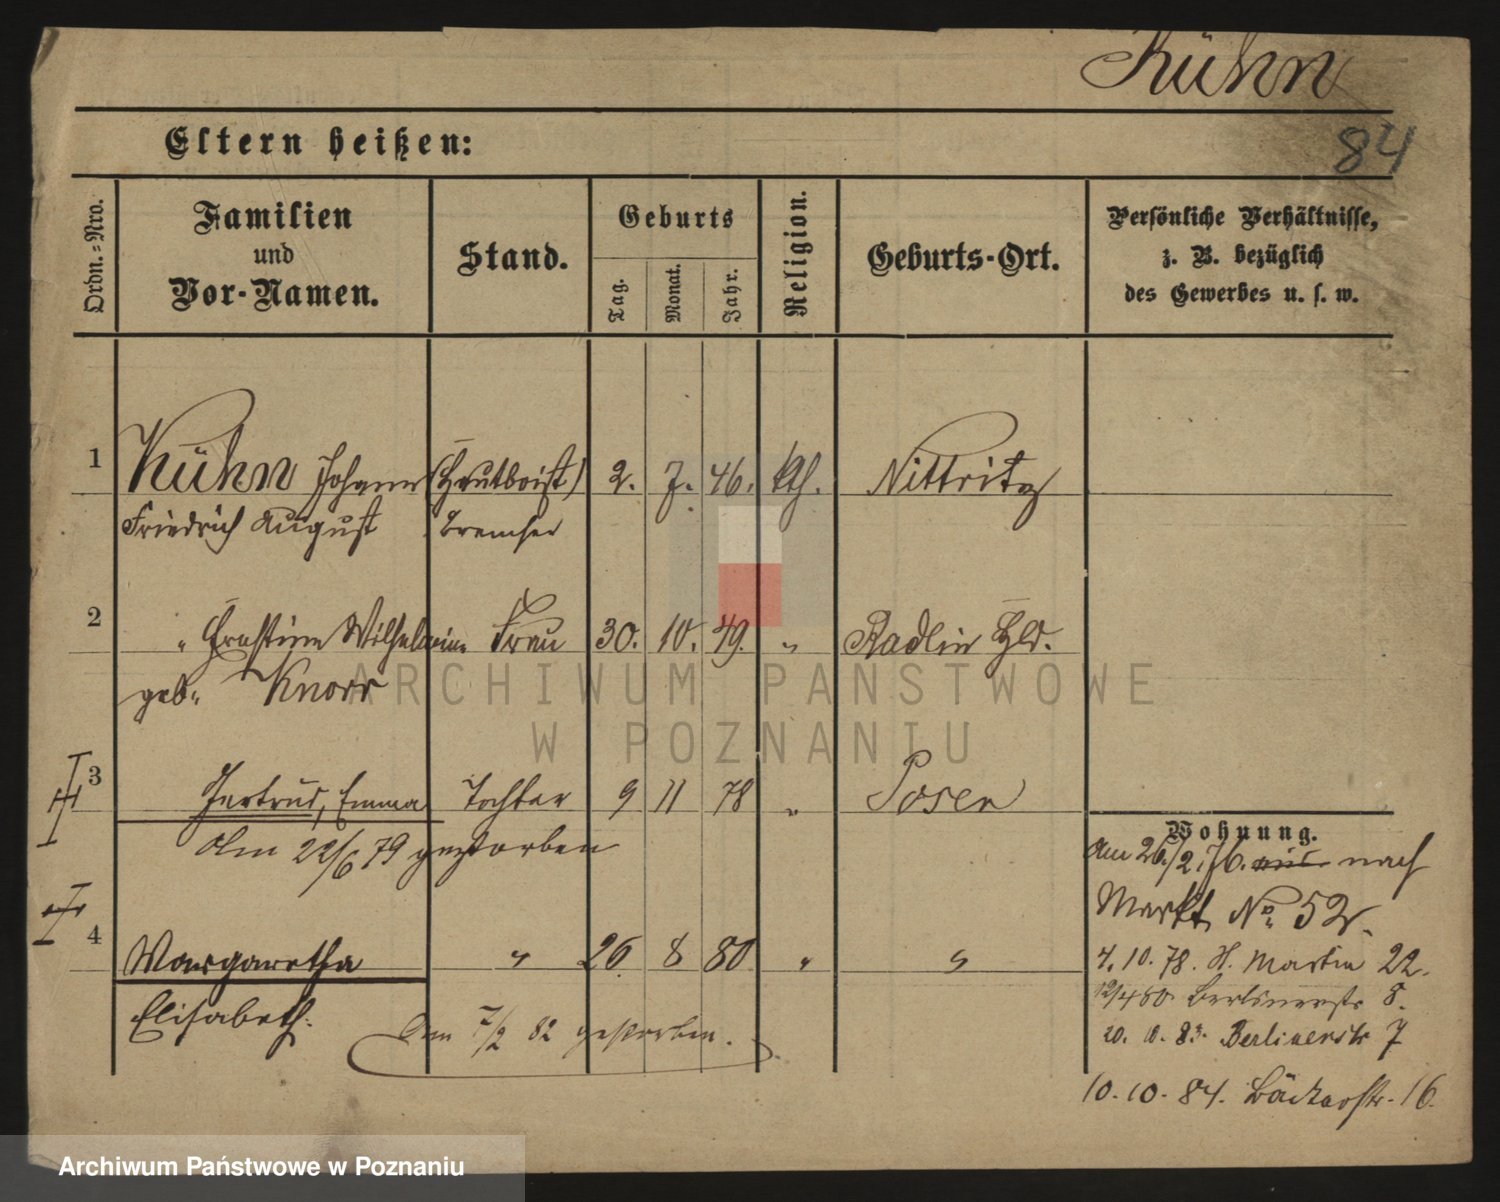 Kühn
84
Eltern heißen:
Ordn.-Nro.
Familien
und
Vor-Namen.
Stand.
Geburts
Tag.
Monat.
Jahr.
Religion.
Geburts-Ort.
Persönliche Verhältnisse,
z. B. bezüglich
des Gewerbes u. s. w.
1 Kühn Johann (Hautboist) 2. 7. 46. kth. Nittritz
Friedrich August
2 " Ernstine Wilhelmine Frau 30. 10. 49. " Radlin Hld.
geb. Knorr
3 Gertrud, Emma Tochter 9 11 78 " Posen
Am 22/6 79 gestorben
4 Margaretha " 26 8 80 " "
Elisabeth.
Am 7/2 82 gestorben.
Wohnung.
Am 26./2. 76. aus nach
Markt No. 52.
4. 10. 78. St. Martin 22.
12/4 80 Berlinerstr 8.
20. 10. 83. Berlinerstr 7
10. 10. 84. Bäckerstr. 16.
ARCHIWUM PAŃSTWOWE
W POZNANIU
Archiwum Państwowe w Poznaniu